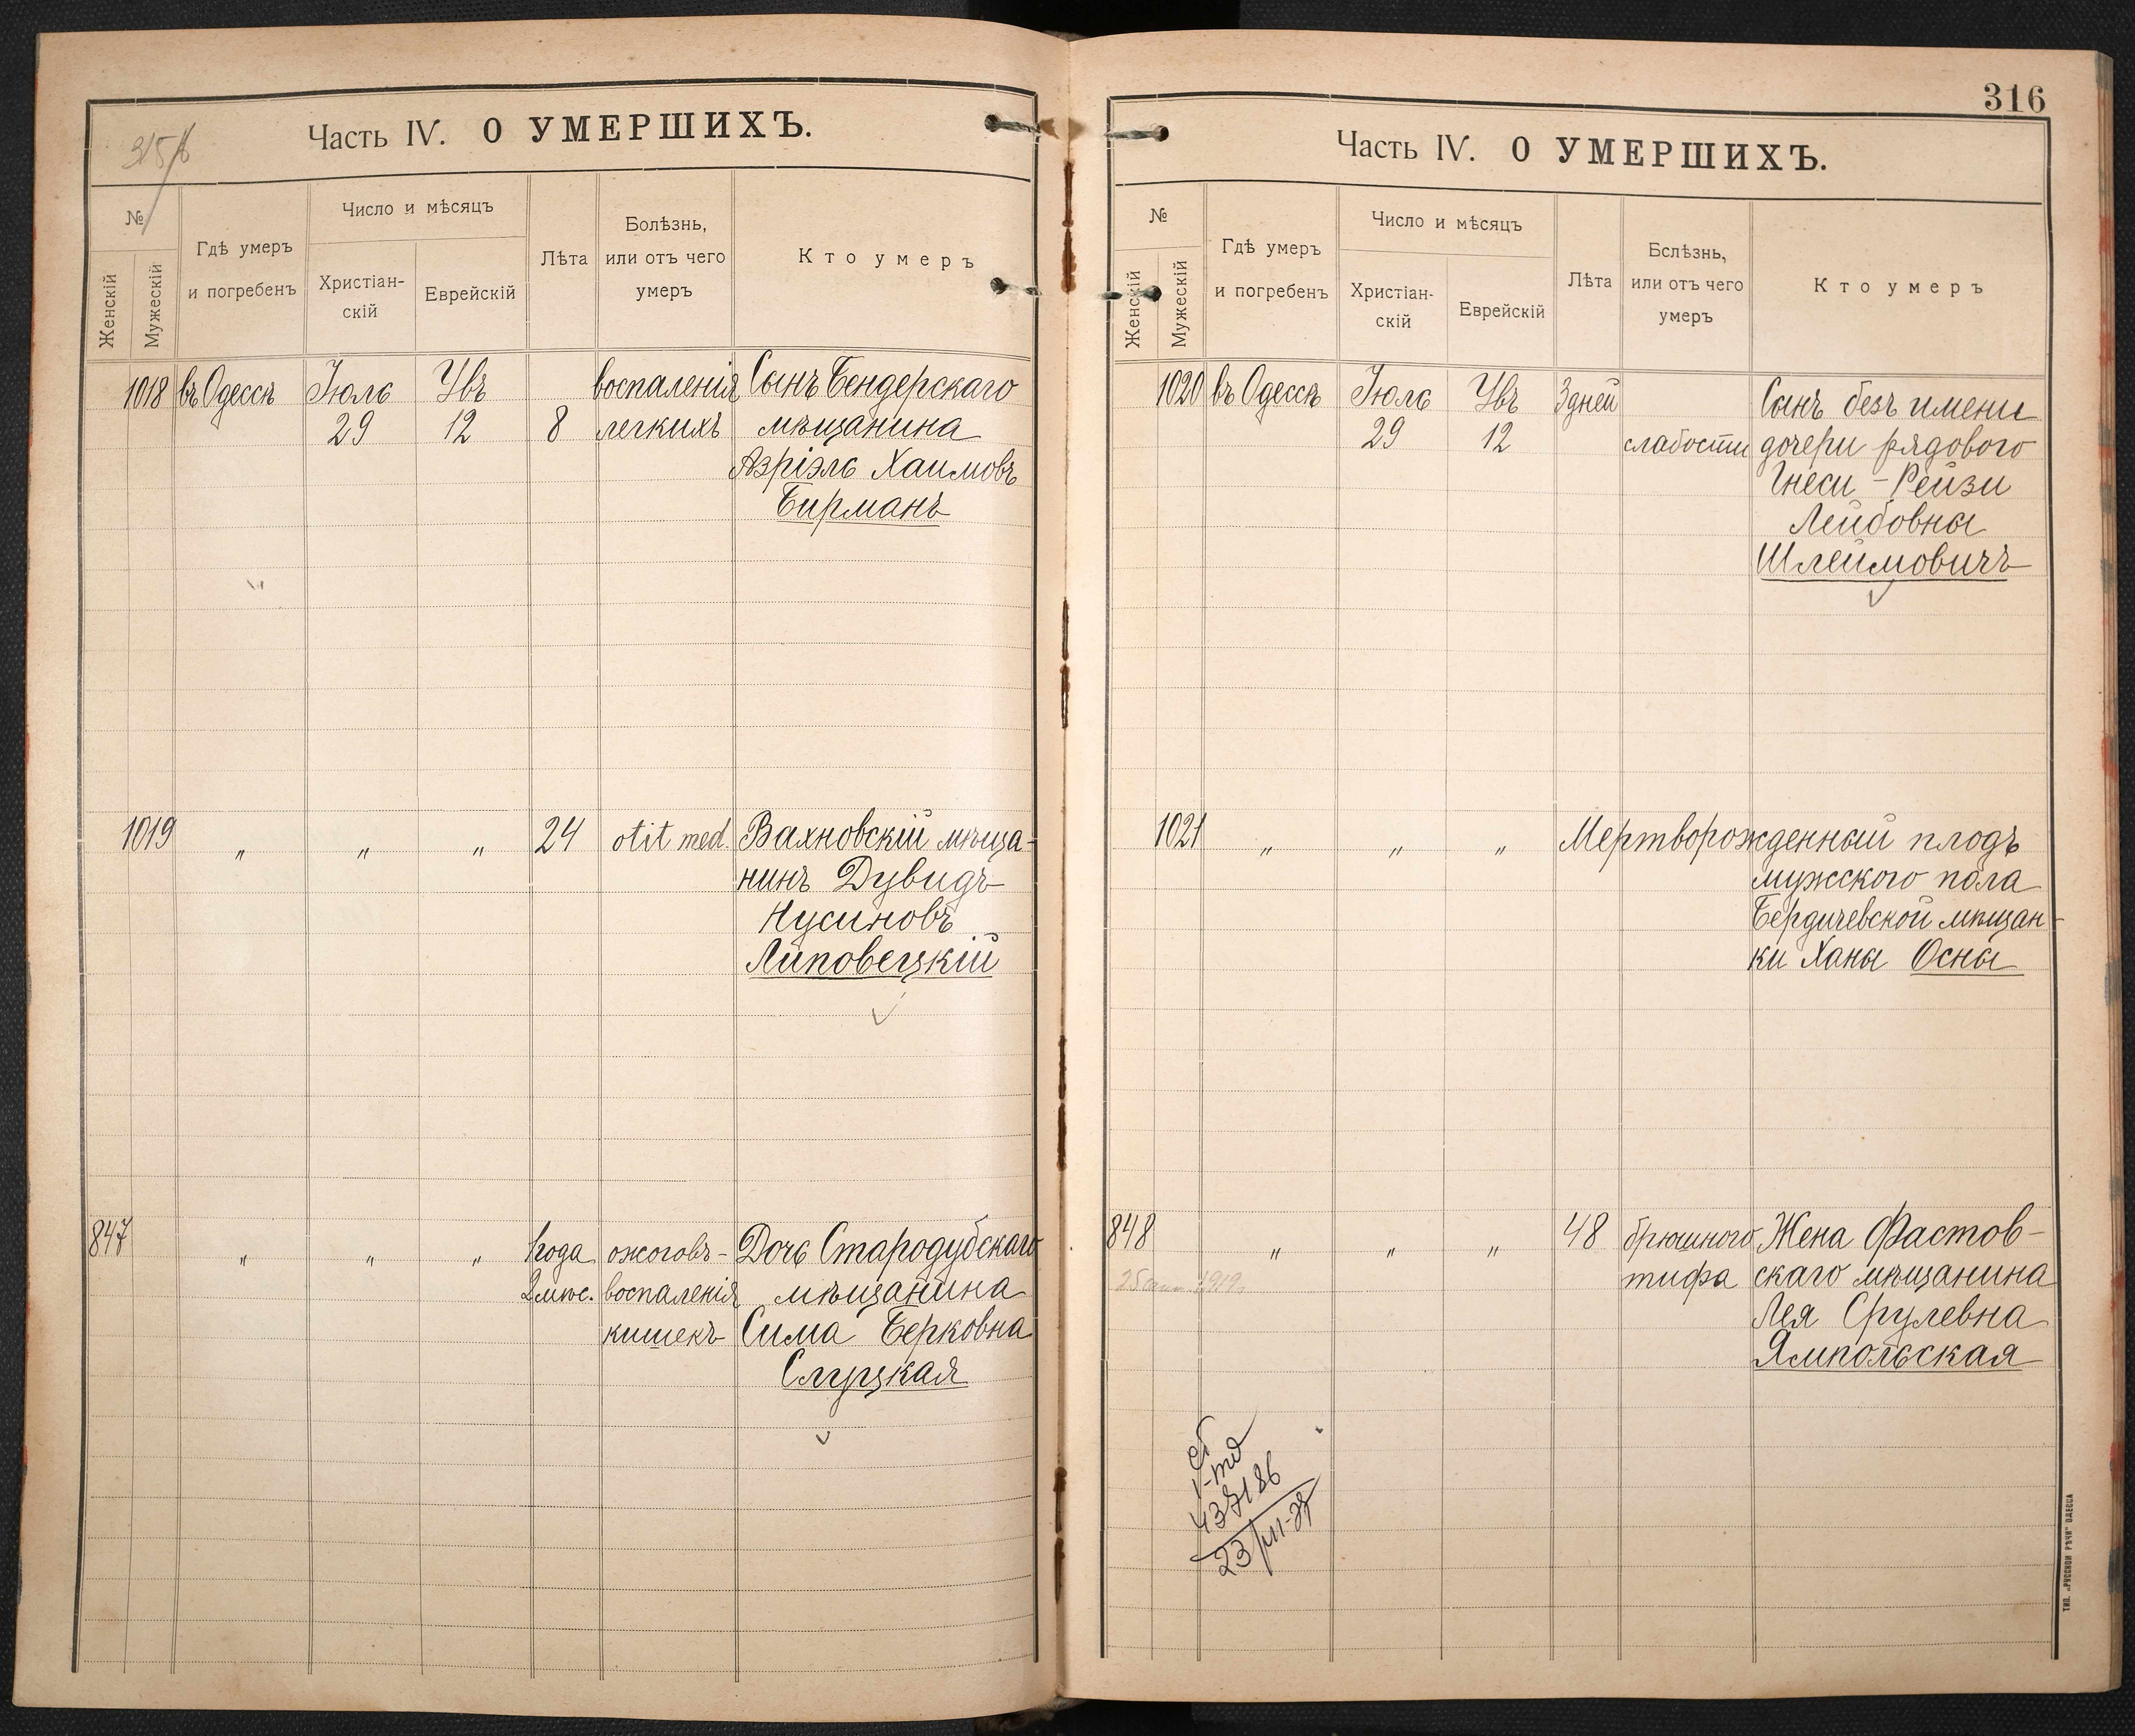 Часть IV. О УМЕРШИХЪ.
№
Женскій
Мужескій
Гдѣ умеръ
и погребенъ
Число и мѣсяцъ
Христіан-
скій
Еврейскій
Лѣта
Болѣзнь,
или отъ чего
умеръ
Кто умеръ
1018 въ Одессѣ Іюль Увъ воспаленія Сынъ Бендерскаго
29 12 8 легкихъ мѣщанина
Азріэль Хаимовъ
Бирманъ
1019 " " " 24 otit med. Вахновскій мѣща-
нинъ Дувидъ
Нусиновъ
Липовецкій
847 " " " 1 года ожоговъ- Дочь Стародубскаго
2 мѣс. воспаленія мѣщанина
кишекъ Сима Берковна
Слуцкая
316
Часть IV. О УМЕРШИХЪ.
№
Женскій
Мужескій
Гдѣ умеръ
и погребенъ
Число и мѣсяцъ
Христіан-
скій
Еврейскій
Лѣта
Бслѣзнь,
или отъ чего
умеръ
Кто умеръ
1020 въ Одессѣ Іюль Увъ 3 дней Сынъ безъ имени
29 12 слабости дочери рядового
Гнеси-Рейзи
Лейбовны
Шлеймовичъ
1021 " " " Мертворожденный плодъ
мужского пола
Бердичевской мѣщан-
ки Ханы Осны
848 " " " 48 брюшного Жена Фастов-
тифа скаго мѣщанина
Лея Срулевна
Ямпольская
ТИП. „РУССКОЙ РѢЧИ" ОДЕССА